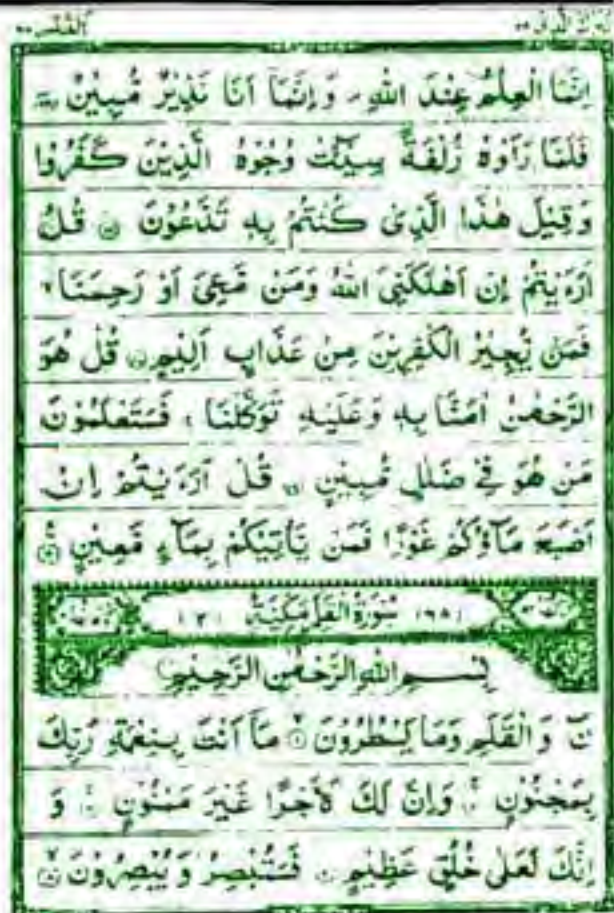 القلم ٦٨
تبٰرك الذی ٢٩
اِنَّمَا الْعِلْمُ عِنْدَ اللّٰهِ ۪ وَ اِنَّمَاۤ اَنَا نَذِیْرٌ مُّبِیْنٌ
فَلَمَّا رَاَوْهُ زُلْفَةً سِیْٓـَٔتْ وُجُوْهُ الَّذِیْنَ كَفَرُوْا
وَ قِیْلَ هٰذَا الَّذِیْ كُنْتُمْ بِهٖ تَدَّعُوْنَ ۝ قُلْ
اَرَءَیْتُمْ اِنْ اَهْلَكَنِیَ اللّٰهُ وَ مَنْ مَّعِیَ اَوْ رَحِمَنَا ۙ
فَمَنْ یُّجِیْرُ الْكٰفِرِیْنَ مِنْ عَذَابٍ اَلِیْمٍ ۝ قُلْ هُوَ
الرَّحْمٰنُ اٰمَنَّا بِهٖ وَ عَلَیْهِ تَوَكَّلْنَا ۚ فَسَتَعْلَمُوْنَ
مَنْ هُوَ فِیْ ضَلٰلٍ مُّبِیْنٍ ۝ قُلْ اَرَءَیْتُمْ اِنْ
اَصْبَحَ مَآؤُكُمْ غَوْرًا فَمَنْ یَّاْتِیْكُمْ بِمَآءٍ مَّعِیْنٍ ۝
(٦٨) سُوْرَةُ الْقَلَمِ مَكِّیَّةٌ (٢)
بِسْمِ اللّٰهِ الرَّحْمٰنِ الرَّحِیْمِ
نٓ وَ الْقَلَمِ وَ مَا یَسْطُرُوْنَ ۝ مَاۤ اَنْتَ بِنِعْمَةِ رَبِّكَ
بِمَجْنُوْنٍ ۝ وَ اِنَّ لَكَ لَاَجْرًا غَیْرَ مَمْنُوْنٍ ۝ وَ
اِنَّكَ لَعَلٰی خُلُقٍ عَظِیْمٍ ۝ فَسَتُبْصِرُ وَ یُبْصِرُوْنَ ۝